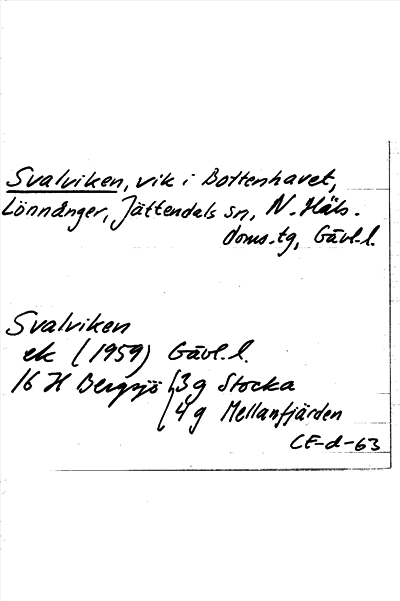 Svalviken, vik i Bottenhavet,
Lönnånger, Jättendals sn, N. Häls.
doms.tg, Gävl.l.
Svalviken
ek (1959) Gävl.l.
16 H Bergsjö {3g Stocka
{4g Mellanfjärden
CE-d-63